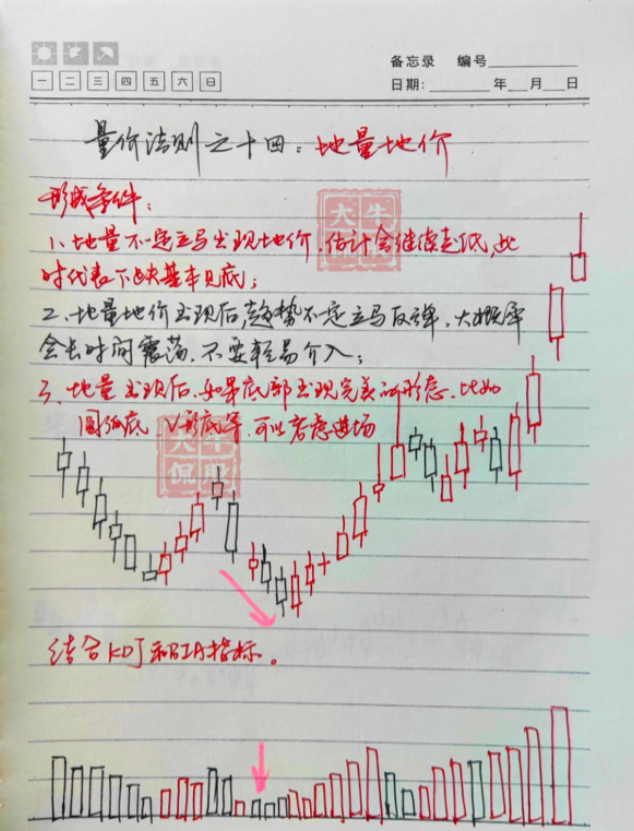 备忘录 编号
一 二 三 四 五 六 日
日期: 年 月 日
量价法则之十四:地量地价
形成条件:
1、地量不一定立马出现地价,估计会继续走低,此
时代表下跌基本见底;
2、地量地价出现后,趋势不一定立马反弹,大概率
会长时间震荡,不要轻易介入;
3、地量出现后,如果底部出现完美的形态,比如
圆弧底、V形底等,可以考虑进场
大牛
侃股
大牛
侃股
结合KDJ和BIA指标。